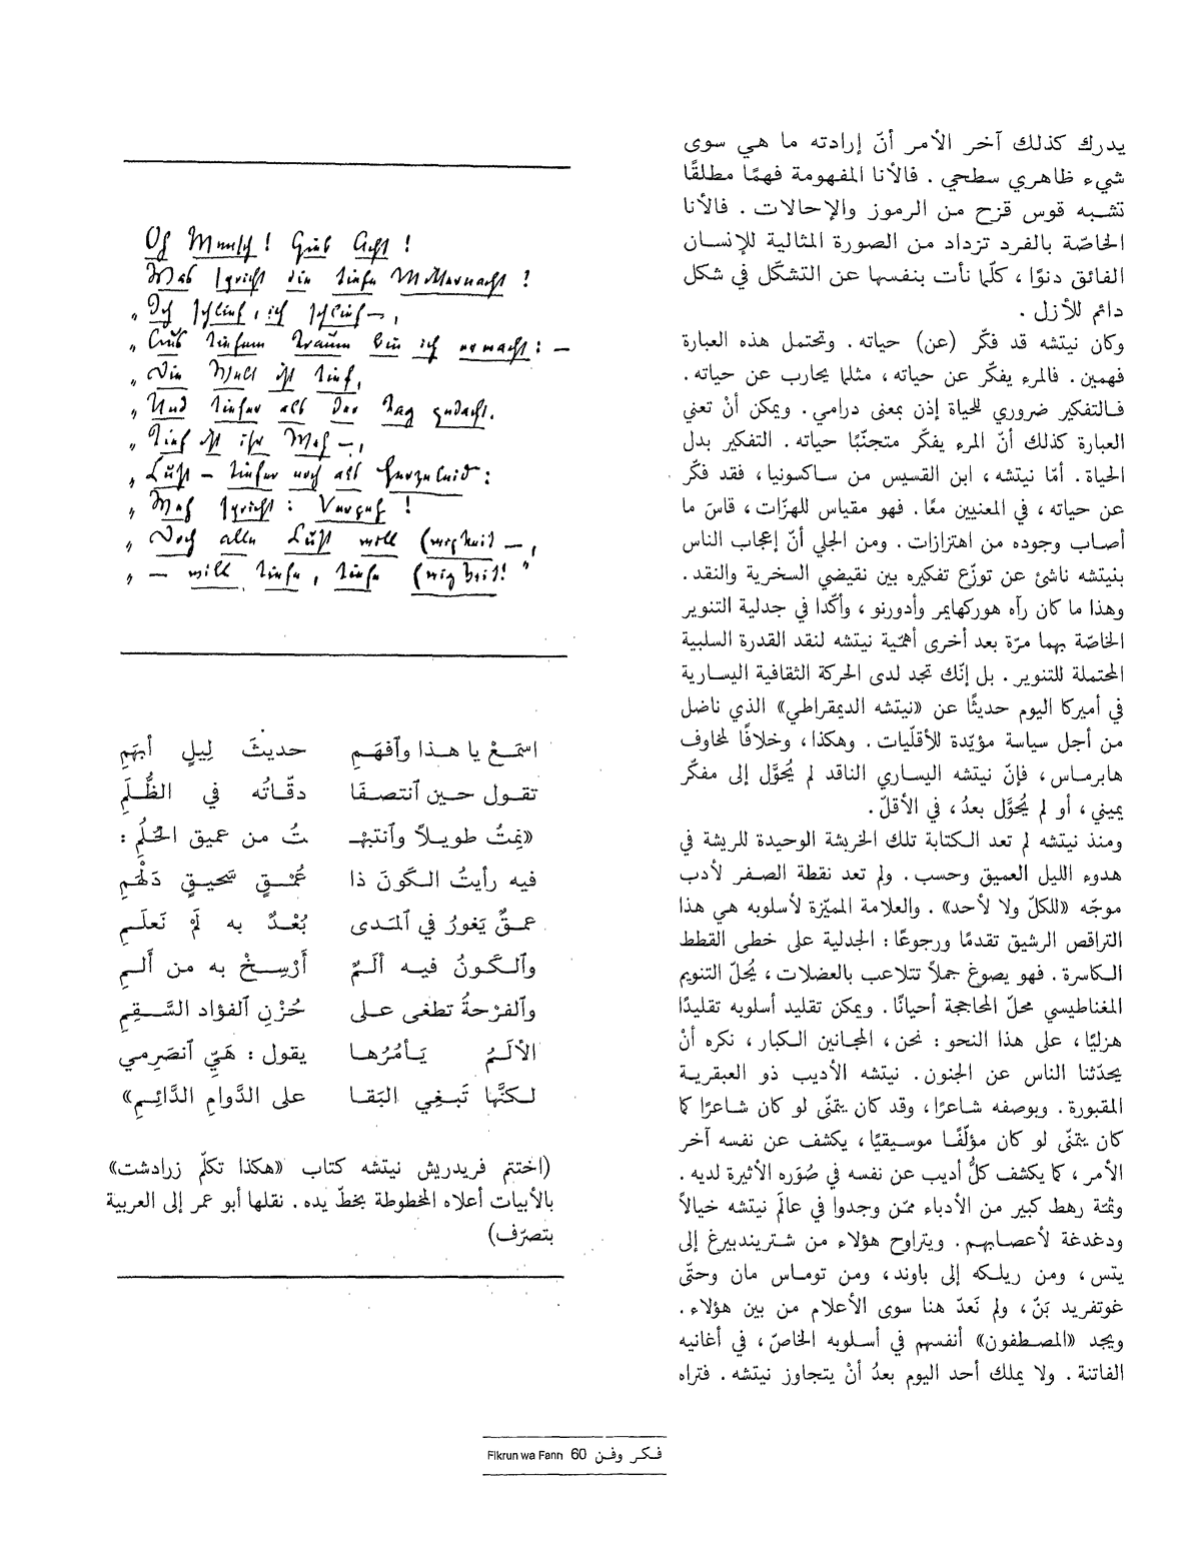 يدرك كذلك آخر الأمر أنّ إرادته ما هي سوى
شيء ظاهري سطحي . فالأنا المفهومة فهمًا مطلقًا
تشبه قوس قزح من الرموز والإحالات . فالأنا
الخاصّة بالفرد تزداد من الصورة المثالية للإنسان
الفائق دنوًا ، كلّما نأت بنفسها عن التشكّل في شكل
دائم للأزل .
وكان نيتشه قد فكّر (عن) حياته . وتحتمل هذه العبارة
فهمين . فالمرء يفكّر عن حياته ، مثلما يحارب عن حياته .
فالتفكير ضروري للحياة إذن بمعنى درامي . ويمكن أنْ تعني
العبارة كذلك أنّ المرء يفكّر متجنّبًا حياته . التفكير بدل
الحياة . أمّا نيتشه ، ابن القسيس من ساكسونيا ، فقد فكّر
عن حياته ، في المعنيين معًا . فهو مقياس للهزّات ، قاسَ ما
أصاب وجوده من اهتزازات . ومن الجلي أنّ إعجاب الناس
بنيتشه ناشئ عن توزّع تفكيره بين نقيضي السخرية والنقد .
وهذا ما كان رآه هوركهايمر وأدورنو ، وأكّدا في جدلية التنوير
الخاصّة بهما مرّة بعد أخرى أهمّية نيتشه لنقد القدرة السلبية
المحتملة للتنوير . بل إنّك تجد لدى الحركة الثقافية اليسارية
في أميركا اليوم حديثًا عن «نيتشه الديمقراطي» الذي ناضل
من أجل سياسة مؤيّدة للأقلّيات . وهكذا ، وخلافًا لمخاوف
هابرماس ، فإنّ نيتشه اليساري الناقد لم يُحوَّل إلى مفكّر
يميني ، أو لم يُحوَّل بعدُ ، في الأقلّ .
ومنذ نيتشه لم تعد الكتابة تلك الخربشة الوحيدة للريشة في
هدوء الليل العميق وحسب . ولم تعد نقطة الصفر لأدب
موجّه «للكلّ ولا لأحد» . والعلامة المميّزة لأسلوبه هي هذا
التراقص الرشيق تقدمًا ورجوعًا : الجدلية على خطى القطط
الكاسرة . فهو يصوغ جملاً تتلاعب بالعضلات ، يُحلّ التنويم
المغناطيسي محلّ المحاججة أحيانًا . ويمكن تقليد أسلوبه تقليدًا
هزليًا ، على هذا النحو : نحن ، المجانين الكبار ، نكره أنْ
يحدّثنا الناس عن الجنون . نيتشه الأديب ذو العبقرية
المقبورة . وبوصفه شاعرًا ، وقد كان يتمنّى لو كان شاعرًا كما
كان يتمنّى لو كان مؤلّفًا موسيقيًا ، يكشف عن نفسه آخر
الأمر ، كما يكشف كلُّ أديب عن نفسه في صُوَره الأثيرة لديه .
وثمّة رهط كبير من الأدباء ممّن وجدوا في عالَم نيتشه خيالاً
ودغدغة لأعصابهم . ويتراوح هؤلاء من شتريندبيرغ إلى
يتس ، ومن ريلكه إلى باوند ، ومن توماس مان وحتّى
غوتفريد بَنّ ، ولم نَعدّ هنا سوى الأعلام من بين هؤلاء .
ويجد «المصطفون» أنفسهم في أسلوبه الخاصّ ، في أغانيه
الفاتنة . ولا يملك أحد اليوم بعدُ أنْ يتجاوز نيتشه . فتراه
Oh Mensch! Gieb Acht!
Was spricht die tiefe Mitternacht?
„Ich schlief, ich schlief—,
„Aus tiefem Traum bin ich erwacht: —
„Die Welt ist tief,
„Und tiefer als der Tag gedacht.
„Tief ist ihr Weh—,
„Lust — tiefer noch als Herzeleid:
„Weh spricht: Vergeh!
„Doch alle Lust will Ewigkeit —,
„— will tiefe, tiefe Ewigkeit!"
اسَمَعْ يا هذا وٱفهَمِ حديثَ لِيلٍ أبهَمِ
تقول حين ٱنتصفَا دقّاتُه في الظُّلَمِ
«نِمتُ طويلاً وٱنتبهْـ ـتُ من عميق الحُلُمِ :
فيه رأيتُ الكَونَ ذا عُمْقٍ سَحيقٍ دَلْهَمِ
عمقٌ يَغورُ في ٱلمَدى بُعْدٌ به لَمْ نَعلَمِ
وٱلكَونُ فيه ألَمٌ أَرْسِخْ به من أَلمِ
وٱلفرْحةُ تطغى على حُزْنِ ٱلفؤاد السَّقِمِ
الأَلَمُ يَأمُرُها يقول : هَيّ ٱنصَرِمي
لكنَّها تَبغِي البَقا على الدَّوامِ الدَّائِمِ»
(اختتم فريدريش نيتشه كتاب «هكذا تكلّم زرادشت»
بالأبيات أعلاه المخطوطة بخطّ يده . نقلها أبو عمر إلى العربية
بتصرّف)
Fikrun wa Fann 60 فكر وفن